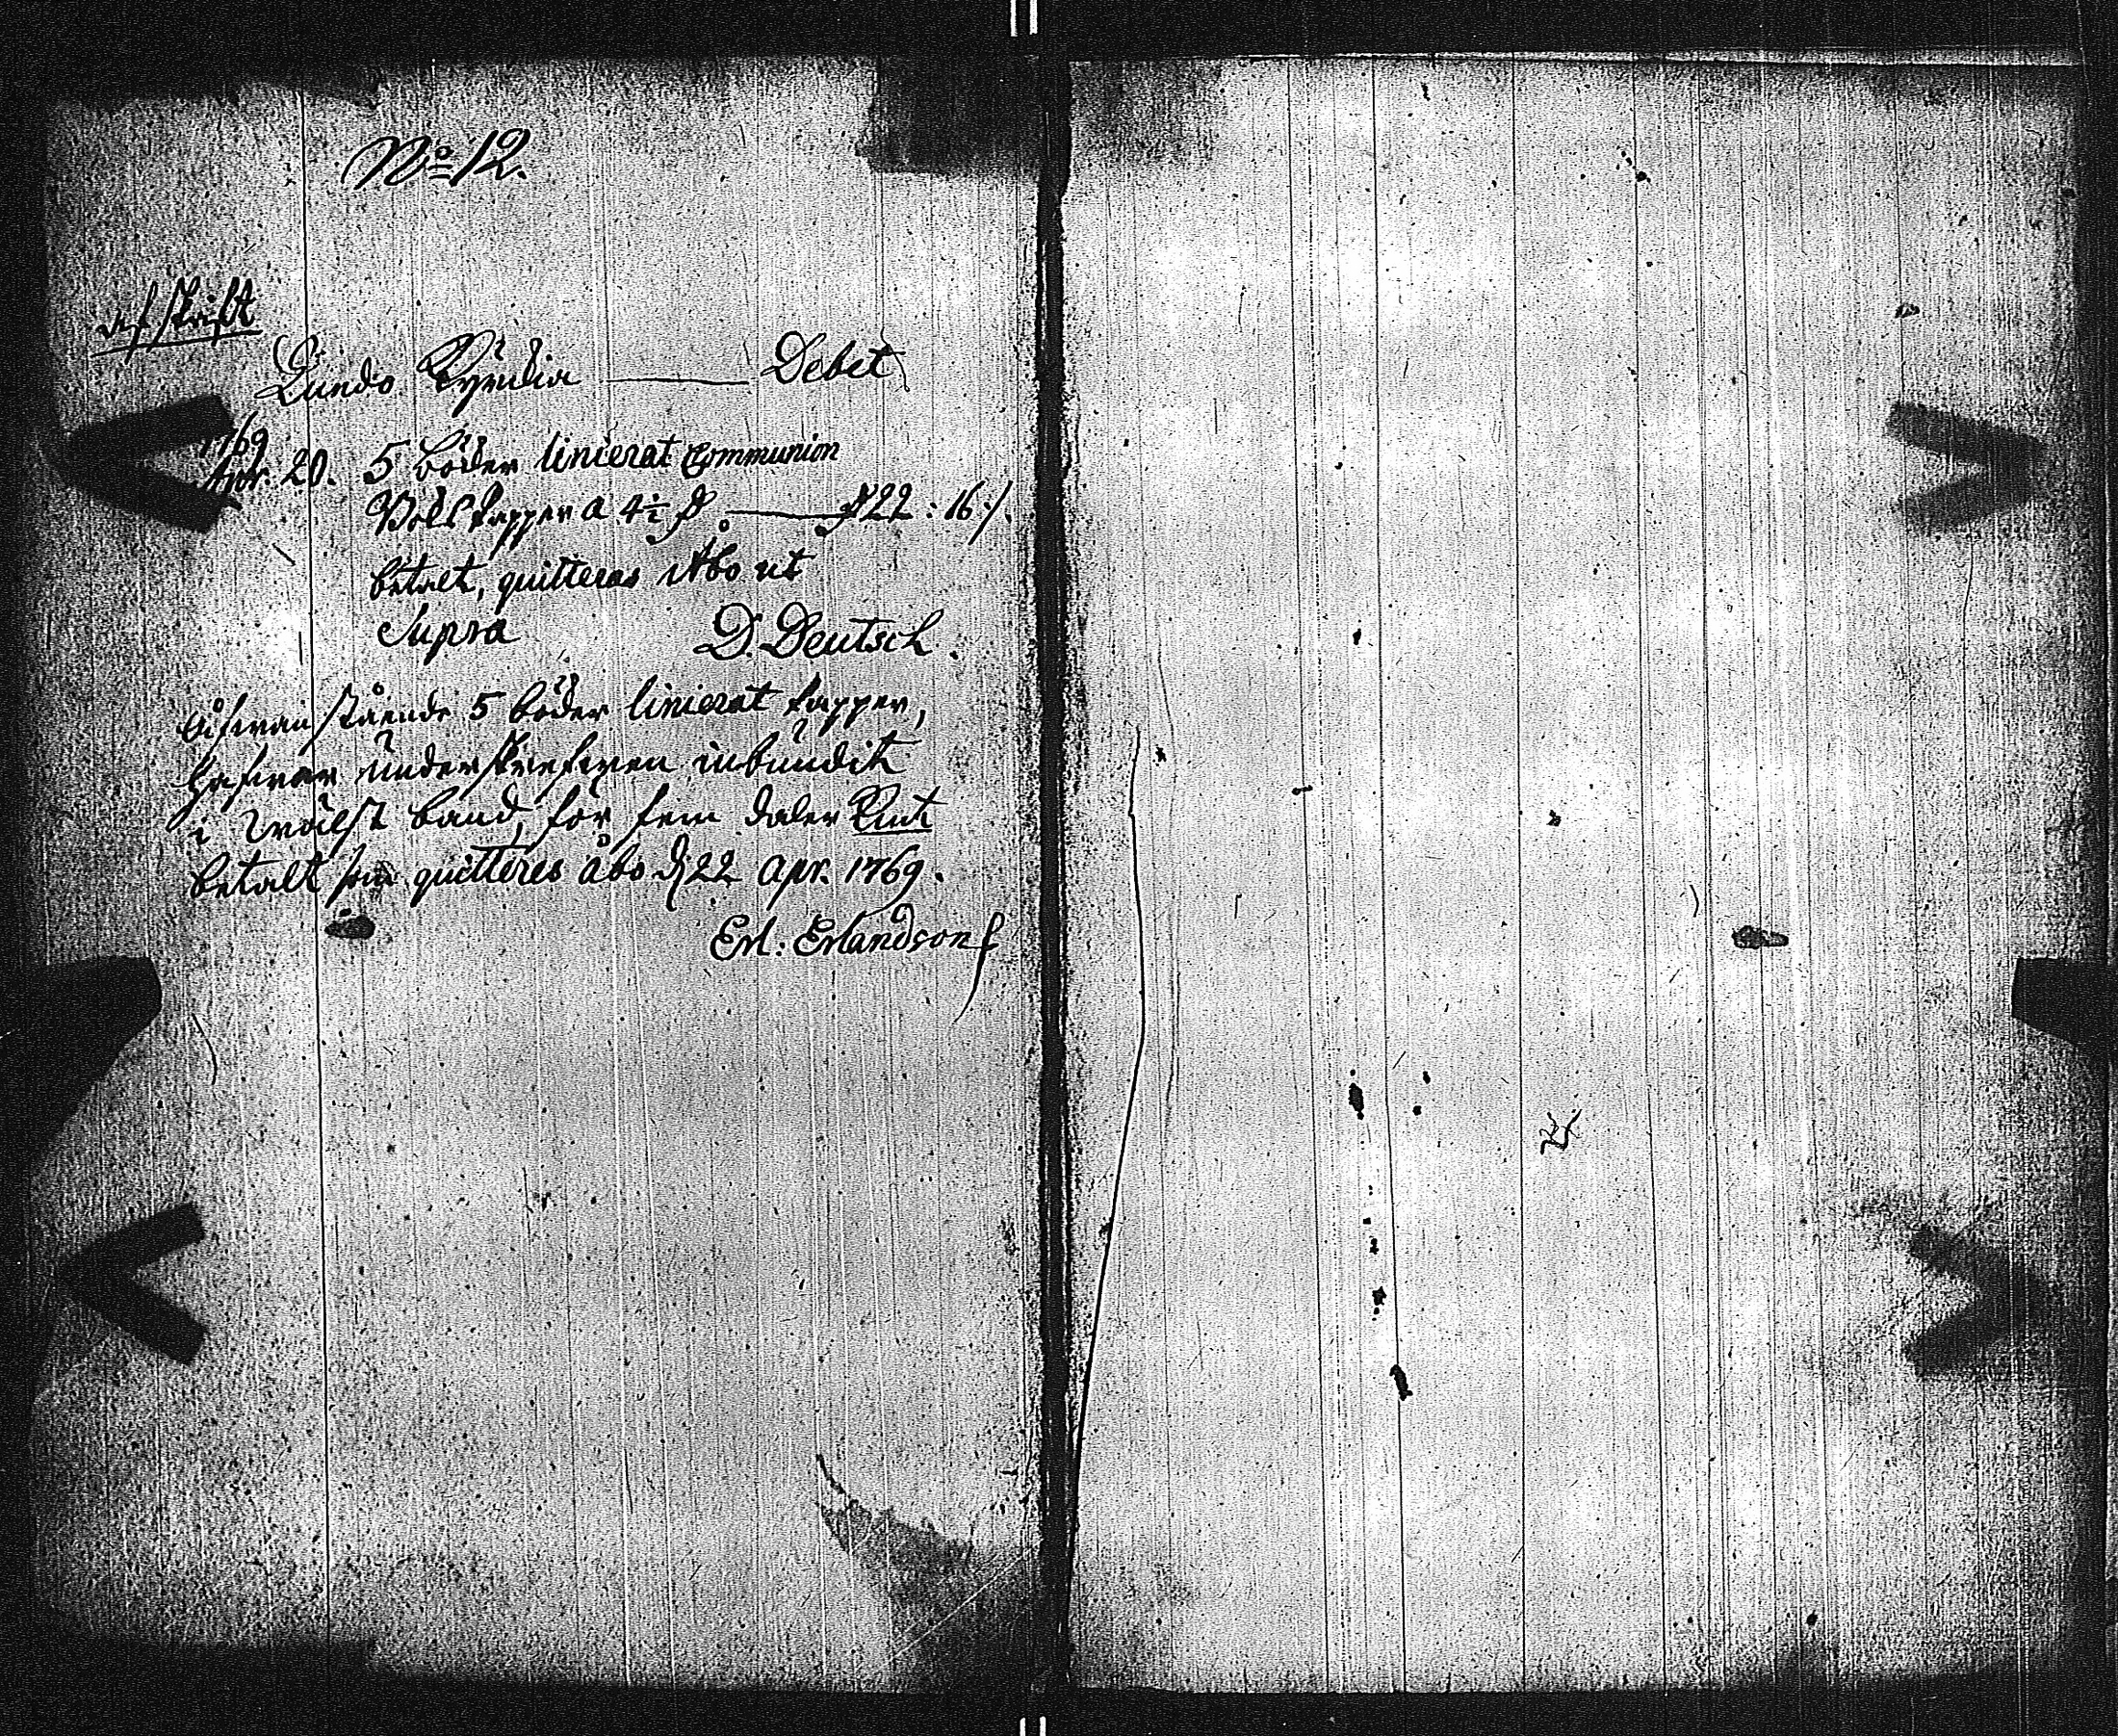 No 12.
Afskrift
Lundo Kyrckia — Debet
1769
Apr. 20. 5 böcker linierat Communion
Boks papper a 4½ D — D 22 : 16 /.
betalt, quitteras Åbo ut
Supra D. Deutsch.
Ofwanstående 5 böcker linierat papper,
hafwer underskrefwen inbundit
i wälskt band, för fem daler Kmt
betalt som quitteres åbo d. 22 apr. 1769.
Erl: Erlandson